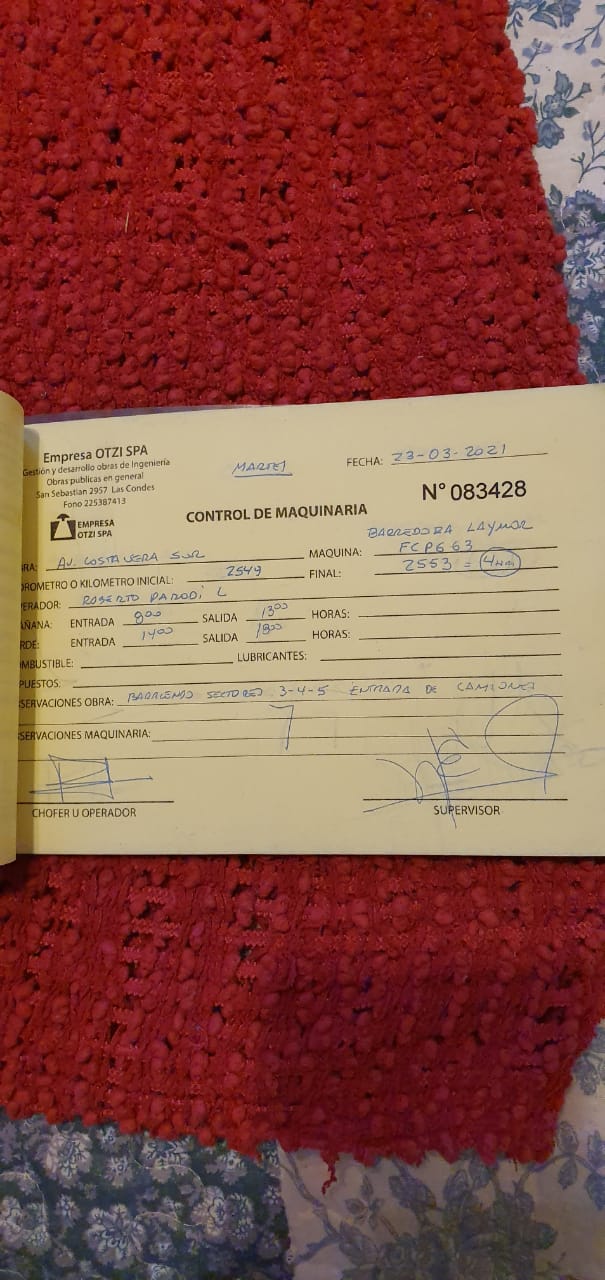 Empresa OTZI SPA
Gestión y desarrollo obras de Ingeniería
Obras publicas en general
San Sebastian 2957 Las Condes
Fono 225387413
EMPRESA
OTZI SPA
MARTES
FECHA: 23-03-2021
N° 083428
CONTROL DE MAQUINARIA
BARREDORA LAYMOR
RA: AV. COSTANERA SUR MAQUINA: FCPG63
OROMETRO O KILOMETRO INICIAL: 2549 FINAL: 2553 = 4HRS
ERADOR: ROBERTO PARODI L
AÑANA: ENTRADA 800 SALIDA 1300 HORAS:
RDE: ENTRADA 1400 SALIDA 1800 HORAS:
MBUSTIBLE: LUBRICANTES:
PUESTOS:
SERVACIONES OBRA: BARRIENDO SECTORES 3-4-5 ENTRADA DE CAMIONES
SERVACIONES MAQUINARIA:
CHOFER U OPERADOR SUPERVISOR